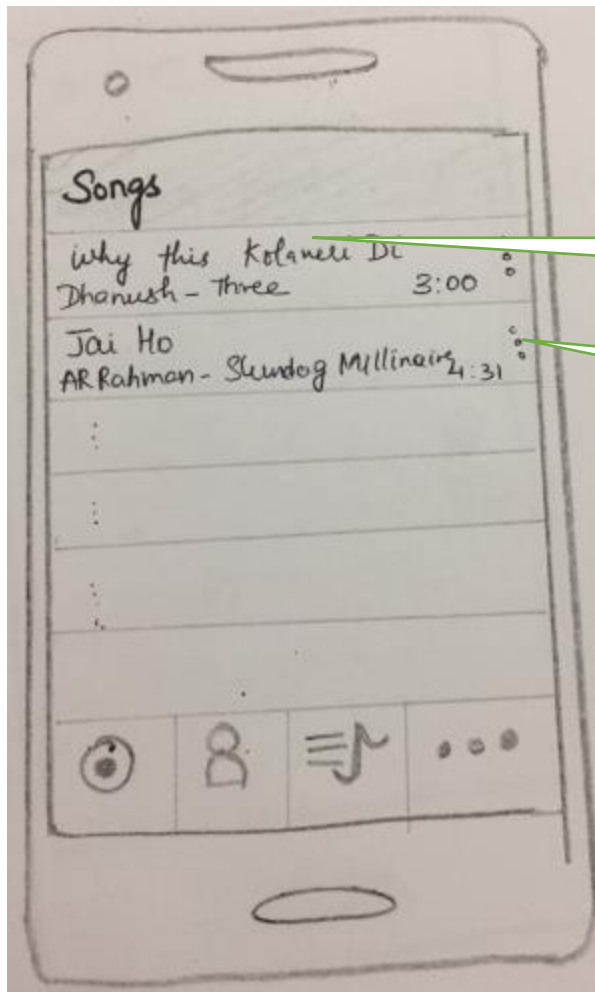 Songs
Why this Kolaveri Di
Dhanush - Three 3:00
Jai Ho
AR Rahman - Slumdog Millinaire 4:31